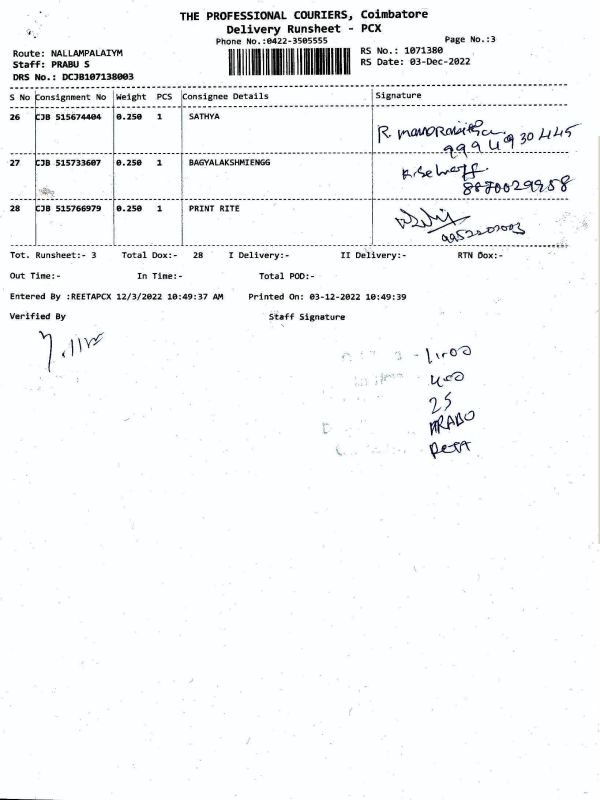 THE PROFESSIONAL COURIERS, Coimbatore
Delivery Runsheet - PCX
Phone No.:0422-3505555
Page No.:3
Route: NALLAMPALAIYM
RS No.: 1071380
Staff: PRABU S
RS Date: 03-Dec-2022
DRS No.: DCJB107138003
S No Consignment No Weight PCS Consignee Details Signature
26 CJB 515674404 0.250 1 SATHYA
27 CJB 515733607 0.250 1 BAGYALAKSHMIENGG
8870029958
28 CJB 515766979 0.250 1 PRINT RITE
Tot. Runsheet:- 3 Total Dox:- 28 I Delivery:- II Delivery:- RTN Dox:-
Out Time:- In Time:- Total POD:-
Entered By :REETAPCX 12/3/2022 10:49:37 AM Printed On: 03-12-2022 10:49:39
Verified By Staff Signature
11.00
4.00
25
PRABO